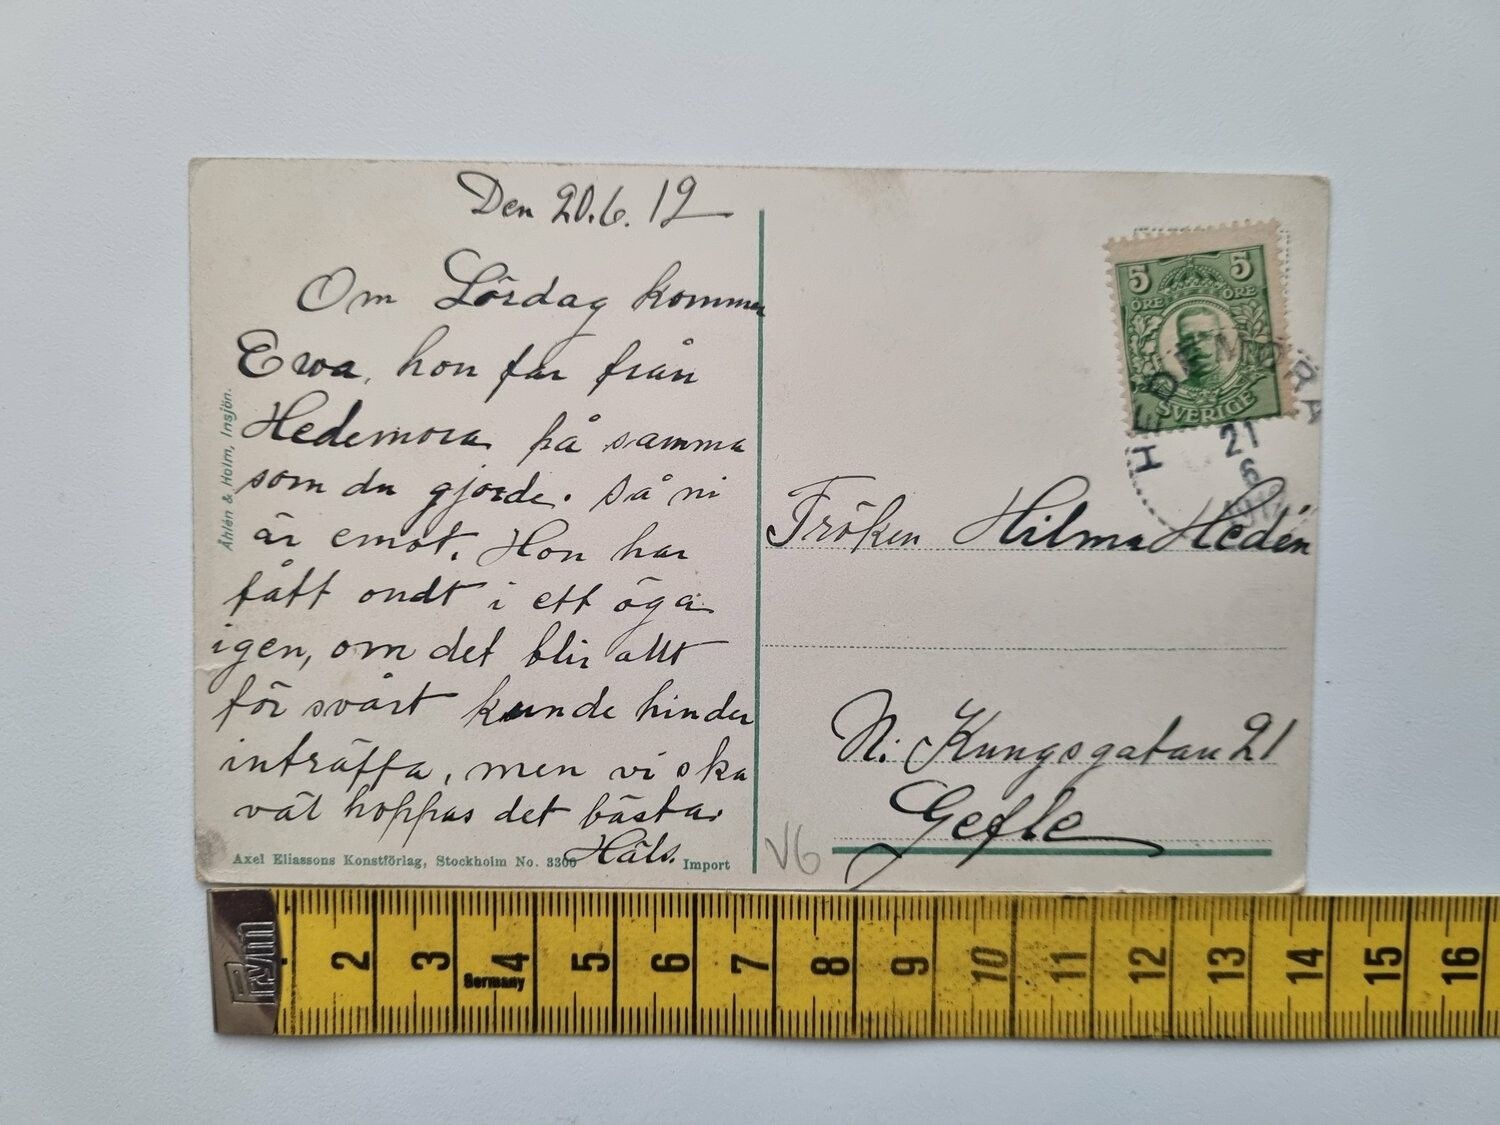 Den 20.6.12
Om Lördag kommer
Ewa, hon far från
Hedemora på samma
som du gjorde. Så ni
är emot. Hon har
fått ondt i ett öga
igen, om det blir allt
för svårt kunde hinder
inträffa, men vi ska
väl hoppas det bästa.
Häls.
Åhlén & Holm, Insjön.
Axel Eliassons Konstförlag, Stockholm No. 3306
Import
5 5
ÖRE ÖRE
SVERIGE
HEDEMORA
21
6
Fröken Hilma Hedén
N. Kungsgatan 21
Gefle
V6
Prym
2 3 4 5 6 7 8 9 10 11 12 13 14 15 16
Germany